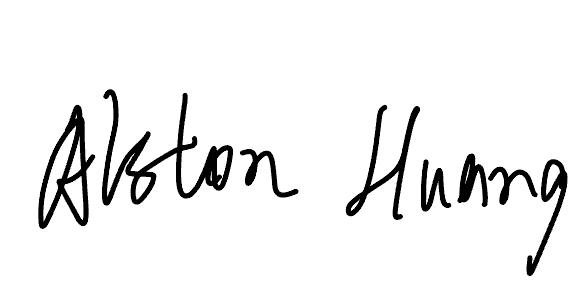 Alston Huang